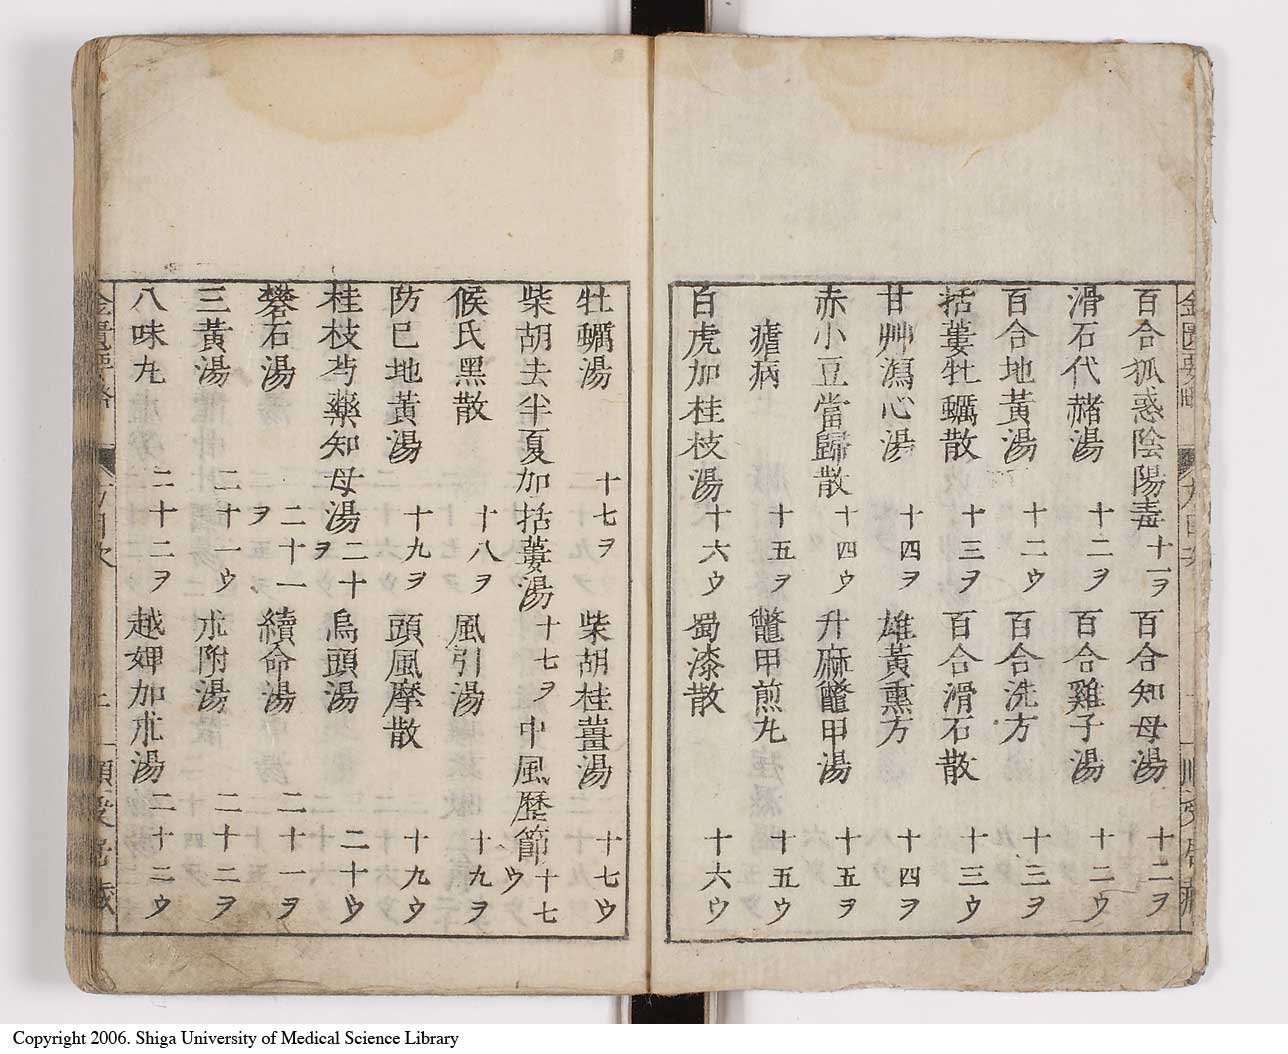 百合狐惑陰陽毒十一ヲ 百合知母湯十二ヲ
滑石代赭湯十二ヲ 百合雞子湯十二ウ
百合地黃湯十二ウ 百合洗方十三ヲ
括蔞牡蠣散十三ヲ 百合滑石散十三ウ
甘艸瀉心湯十四ヲ 雄黃熏方十四ヲ
赤小豆當歸散十四ウ 升麻鼈甲湯十五ヲ
瘧病十五ヲ 鼈甲煎丸十五ウ
白虎加桂枝湯十六ウ 蜀漆散十六ウ
牡蠣湯十七ヲ 柴胡桂薑湯十七ウ
柴胡去半夏加括蔞湯十七ヲ 中風歷節十七ウ
候氏黑散十八ヲ 風引湯十九ヲ
防巳地黃湯十九ヲ 頭風摩散十九ウ
桂枝芍藥知母湯二十ヲ 烏頭湯二十ウ
礬石湯二十一ヲ 續命湯二十一ヲ
三黃湯二十一ウ 朮附湯二十二ヲ
八味丸二十二ヲ 越婢加朮湯二十二ウ
金匱要略 目次 上
Copyright 2006. Shiga University of Medical Science Library